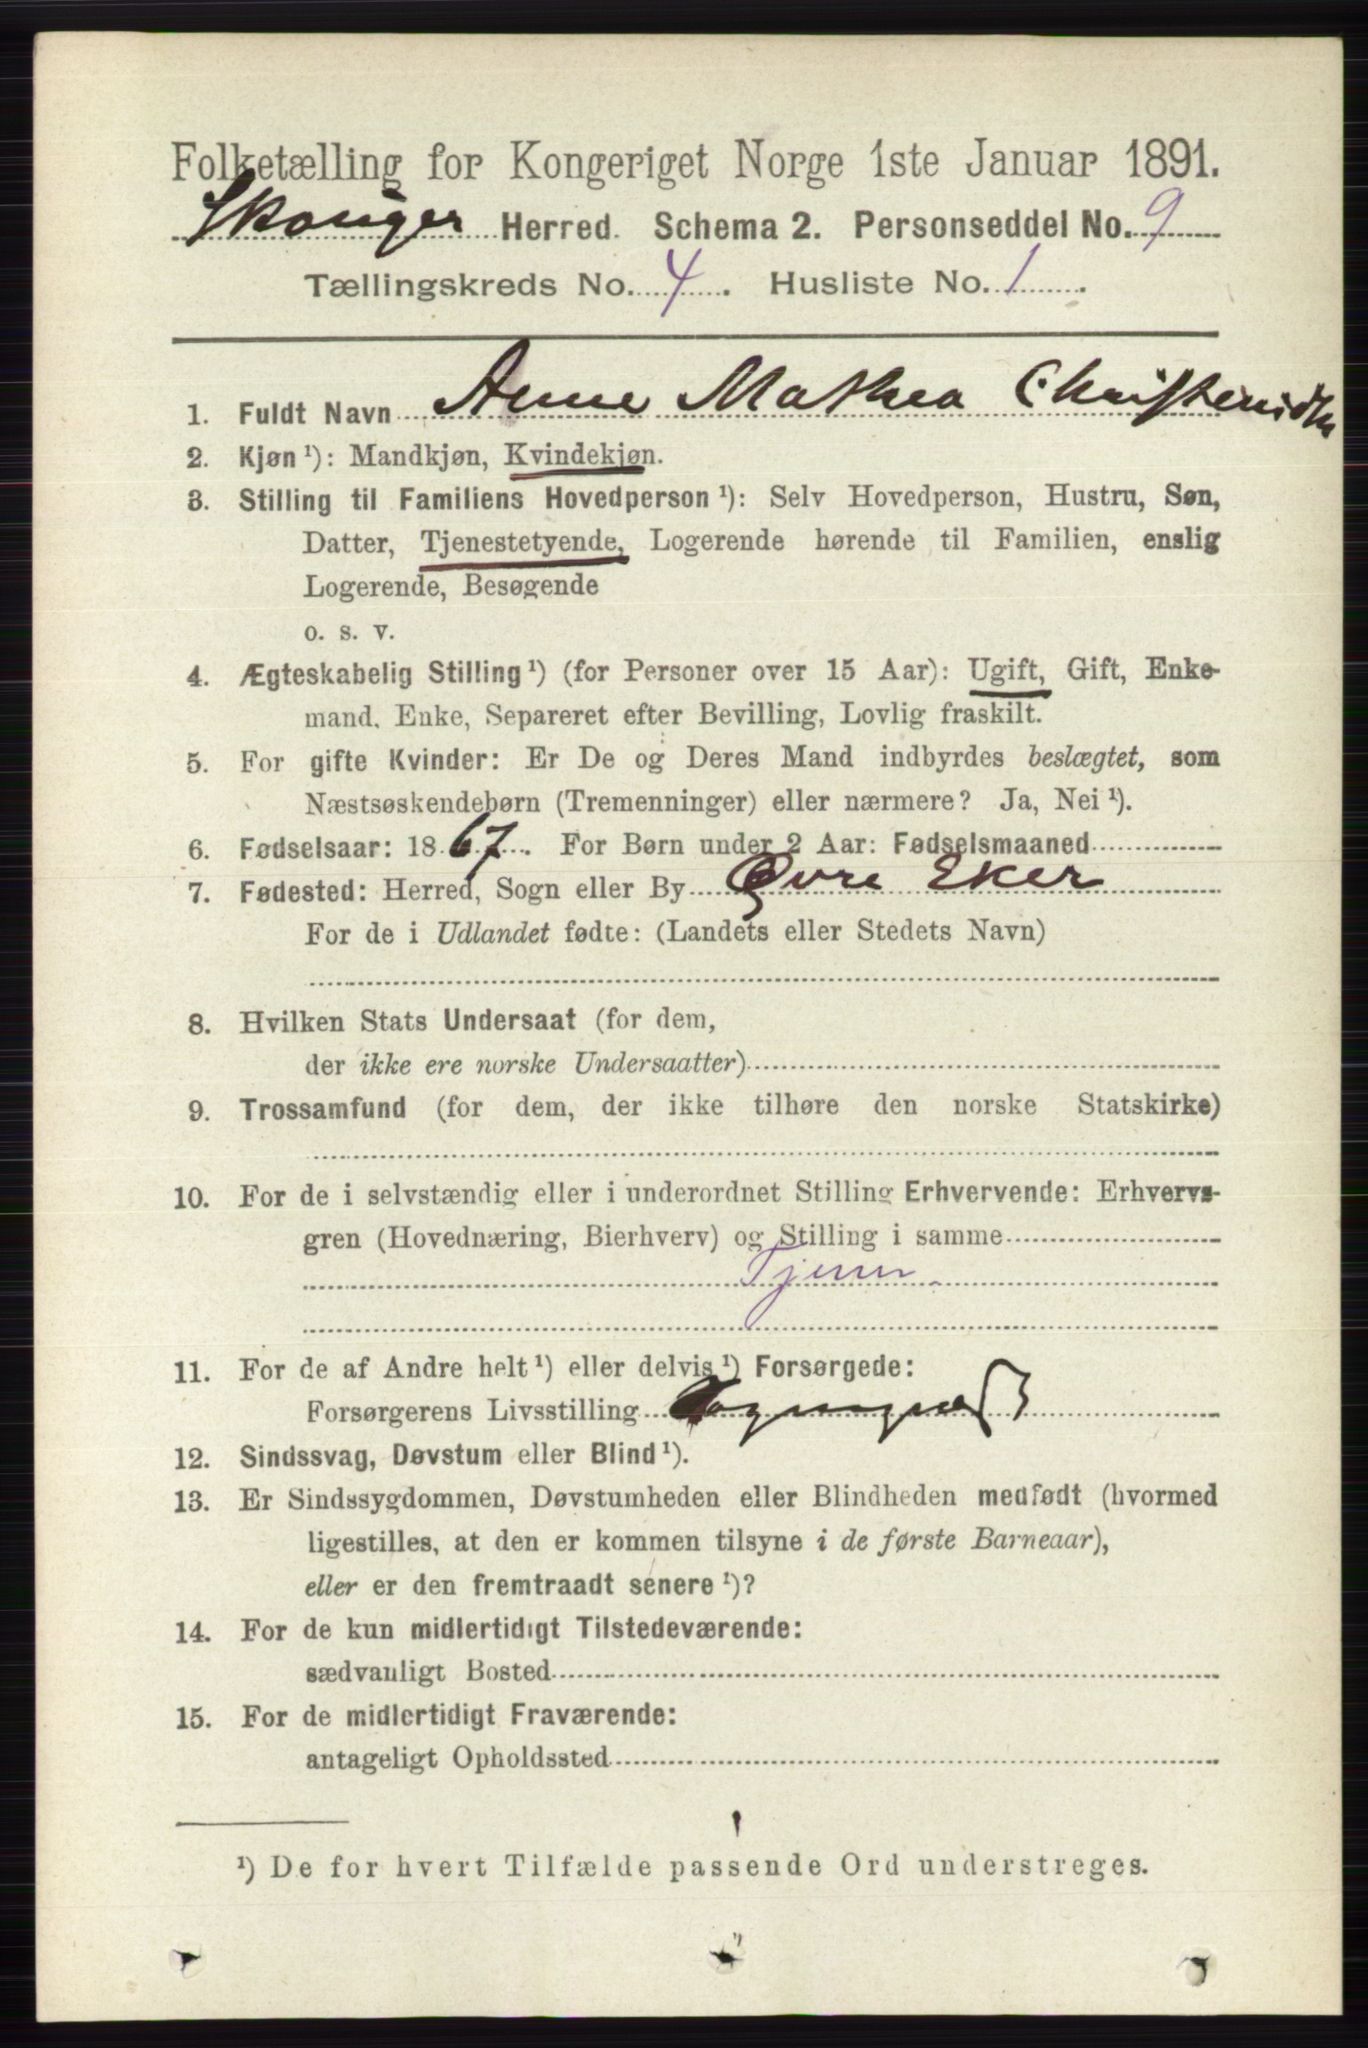 Folketælling for Kongeriget Norge 1ste Januar 1891.
Skouger Herred. Schema 2. Personseddel No. 9
Tællingskreds No. 4. Husliste No. 1.
1. Fuldt Navn Anne Mathea
2. Kjøn ¹): Mandkjøn, Kvindekjøn.
3. Stilling til Familiens Hovedperson ¹): Selv Hovedperson, Hustru, Søn,
Datter, Tjenestetyende, Logerende hørende til Familien, enslig
Logerende, Besøgende
o. s. v.
4. Ægteskabelig Stilling ¹) (for Personer over 15 Aar): Ugift, Gift, Enke-
mand, Enke, Separeret efter Bevilling, Lovlig fraskilt.
5. For gifte Kvinder: Er De og Deres Mand indbyrdes beslægtet, som
Næstsøskendebørn (Tremenninger) eller nærmere? Ja, Nei ¹).
6. Fødselsaar: 1867. For Børn under 2 Aar: Fødselsmaaned
7. Fødested: Herred, Sogn eller By Øvre Eker
For de i Udlandet fødte: (Landets eller Stedets Navn)
8. Hvilken Stats Undersaat (for dem,
der ikke ere norske Undersaatter)
9. Trossamfund (for dem, der ikke tilhøre den norske Statskirke)
10. For de i selvstændig eller i underordnet Stilling Erhvervende: Erhvervs-
gren (Hovednæring, Bierhverv) og Stilling i samme
11. For de af Andre helt ¹) eller delvis ¹) Forsørgede:
Forsørgerens Livsstilling
12. Sindssvag, Døvstum eller Blind ¹).
13. Er Sindssygdommen, Døvstumheden eller Blindheden medfødt (hvormed
ligestilles, at den er kommen tilsyne i de første Barneaar),
eller er den fremtraadt senere ¹)?
14. For de kun midlertidigt Tilstedeværende:
sædvanligt Bosted
15. For de midlertidigt Fraværende:
antageligt Opholdssted
¹) De for hvert Tilfælde passende Ord understreges.